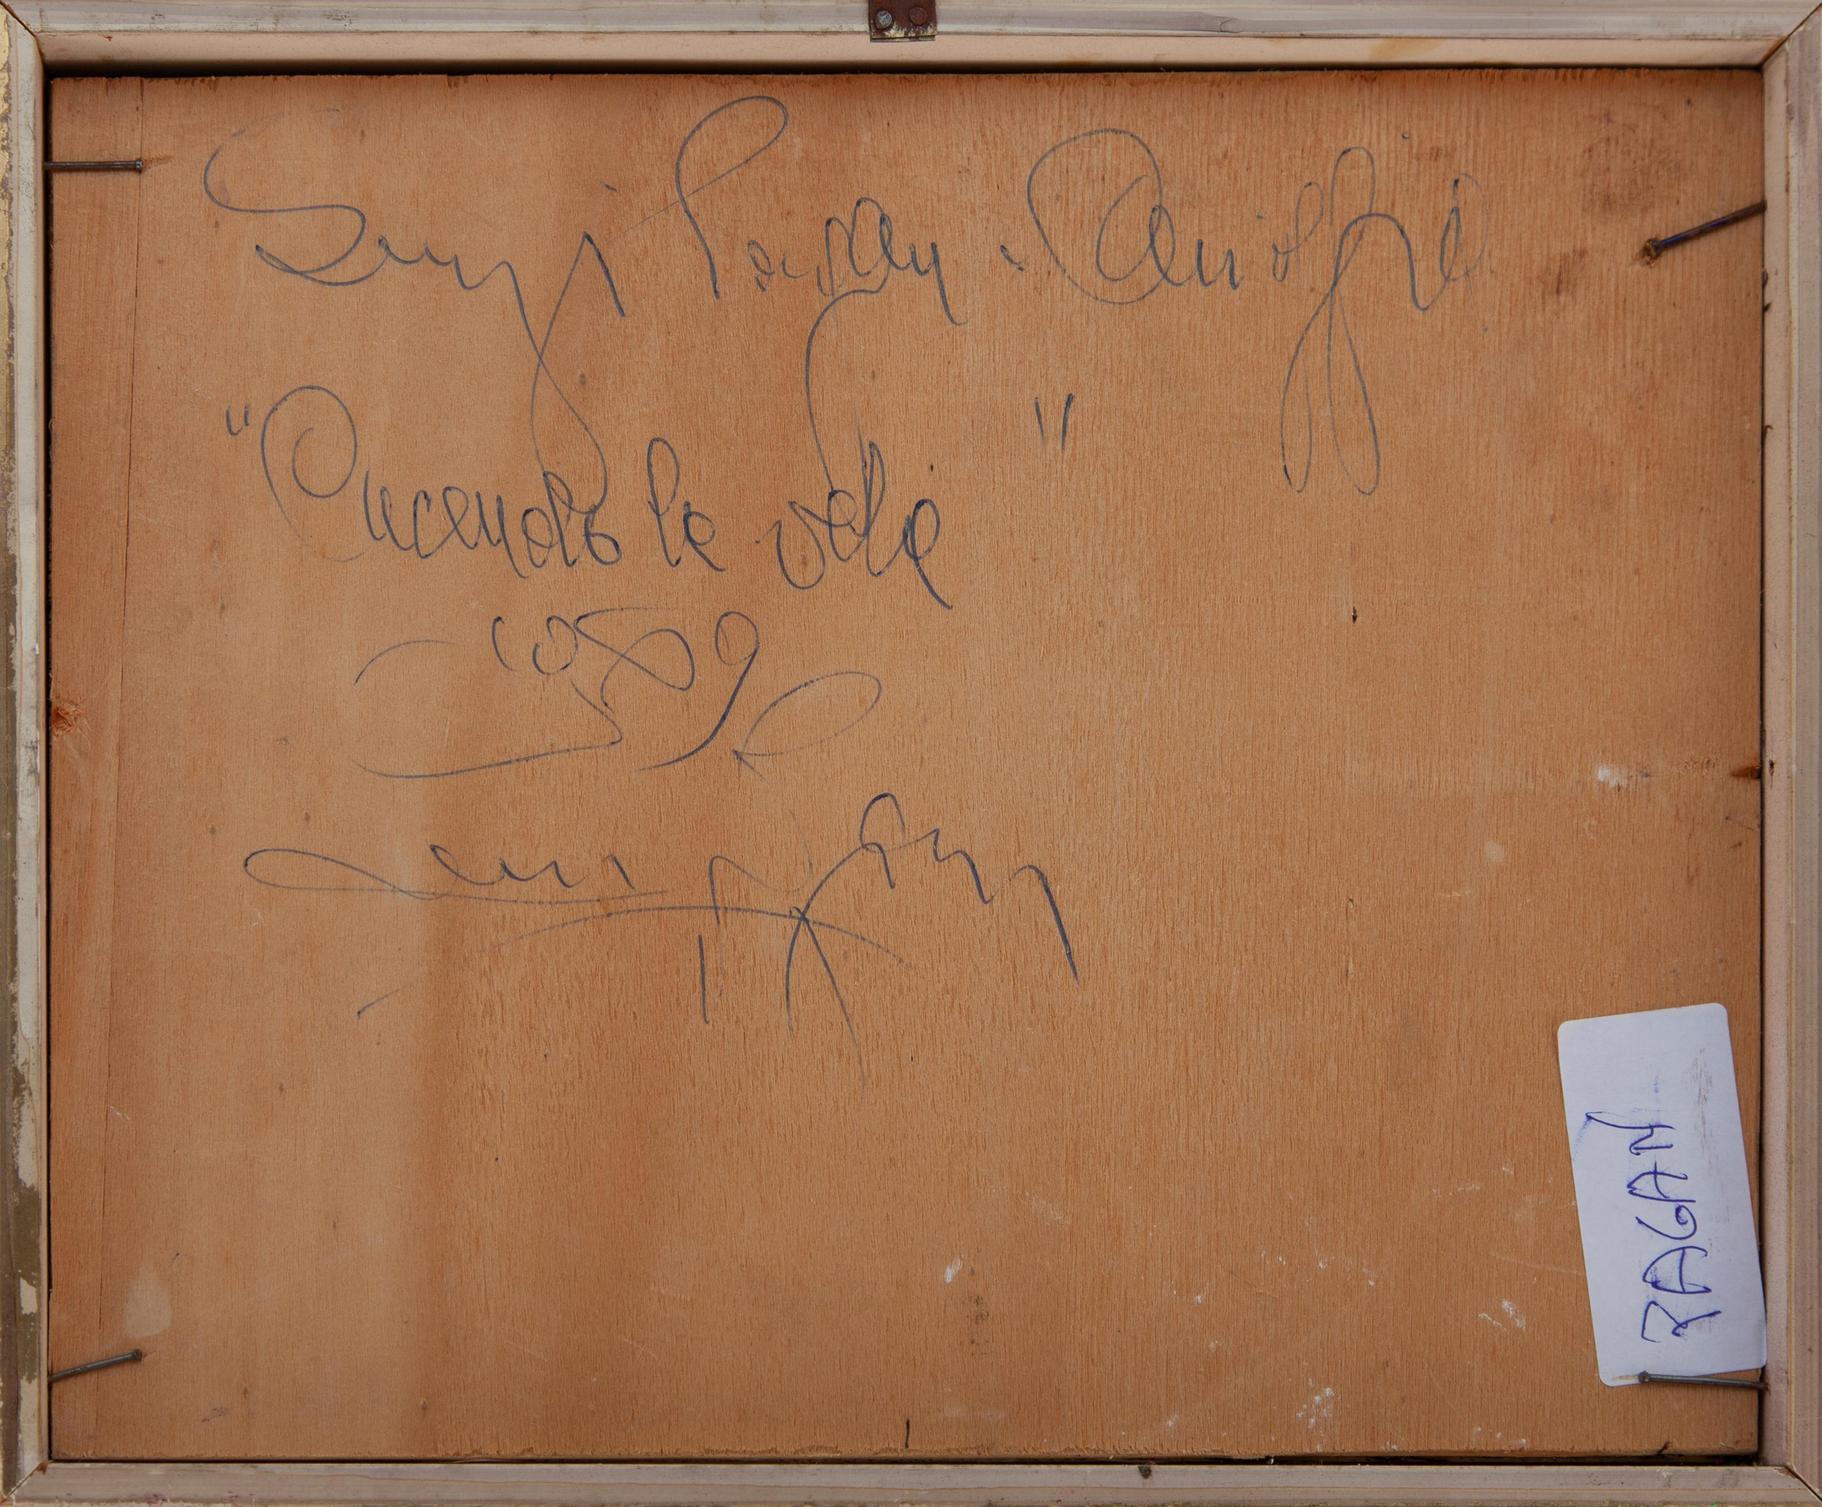 Luigi Pagan - Chioggia
"Cucendo le vele"
1959
Luigi Pagan
PAGAN